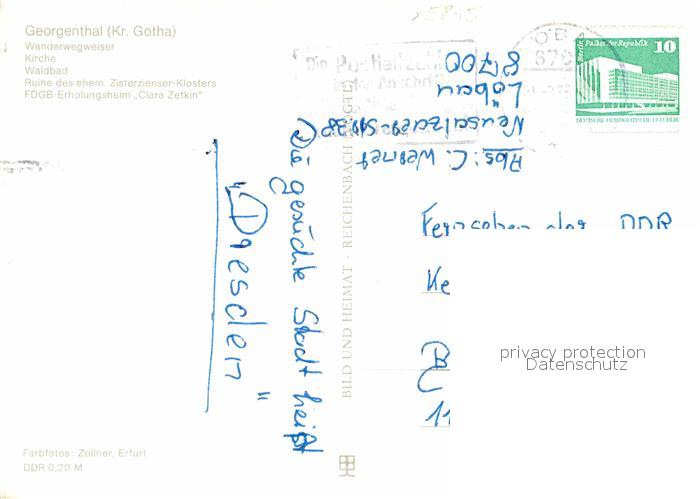 Georgenthal (Kr. Gotha)
Wanderwegweiser
Kirche
Waldbad
Ruine des ehem. Zisterzienser-Klosters
FDGB-Erholungsheim „Clara Zetkin"
Die gesuchte Stadt heißt
„Dresden"
BILD UND HEIMAT · REICHENBACH
Die Postleitzahl
Berlin, Palast der Republik 10
DEUTSCHE DEMOKRATISCHE REPUBLIK
Abs: C. Werner
Löbau
8700
Fernsehen der DDR
Ke
11
privacy protection
Datenschutz
Farbfotos: Zöllner, Erfurt
DDR 0,20 M